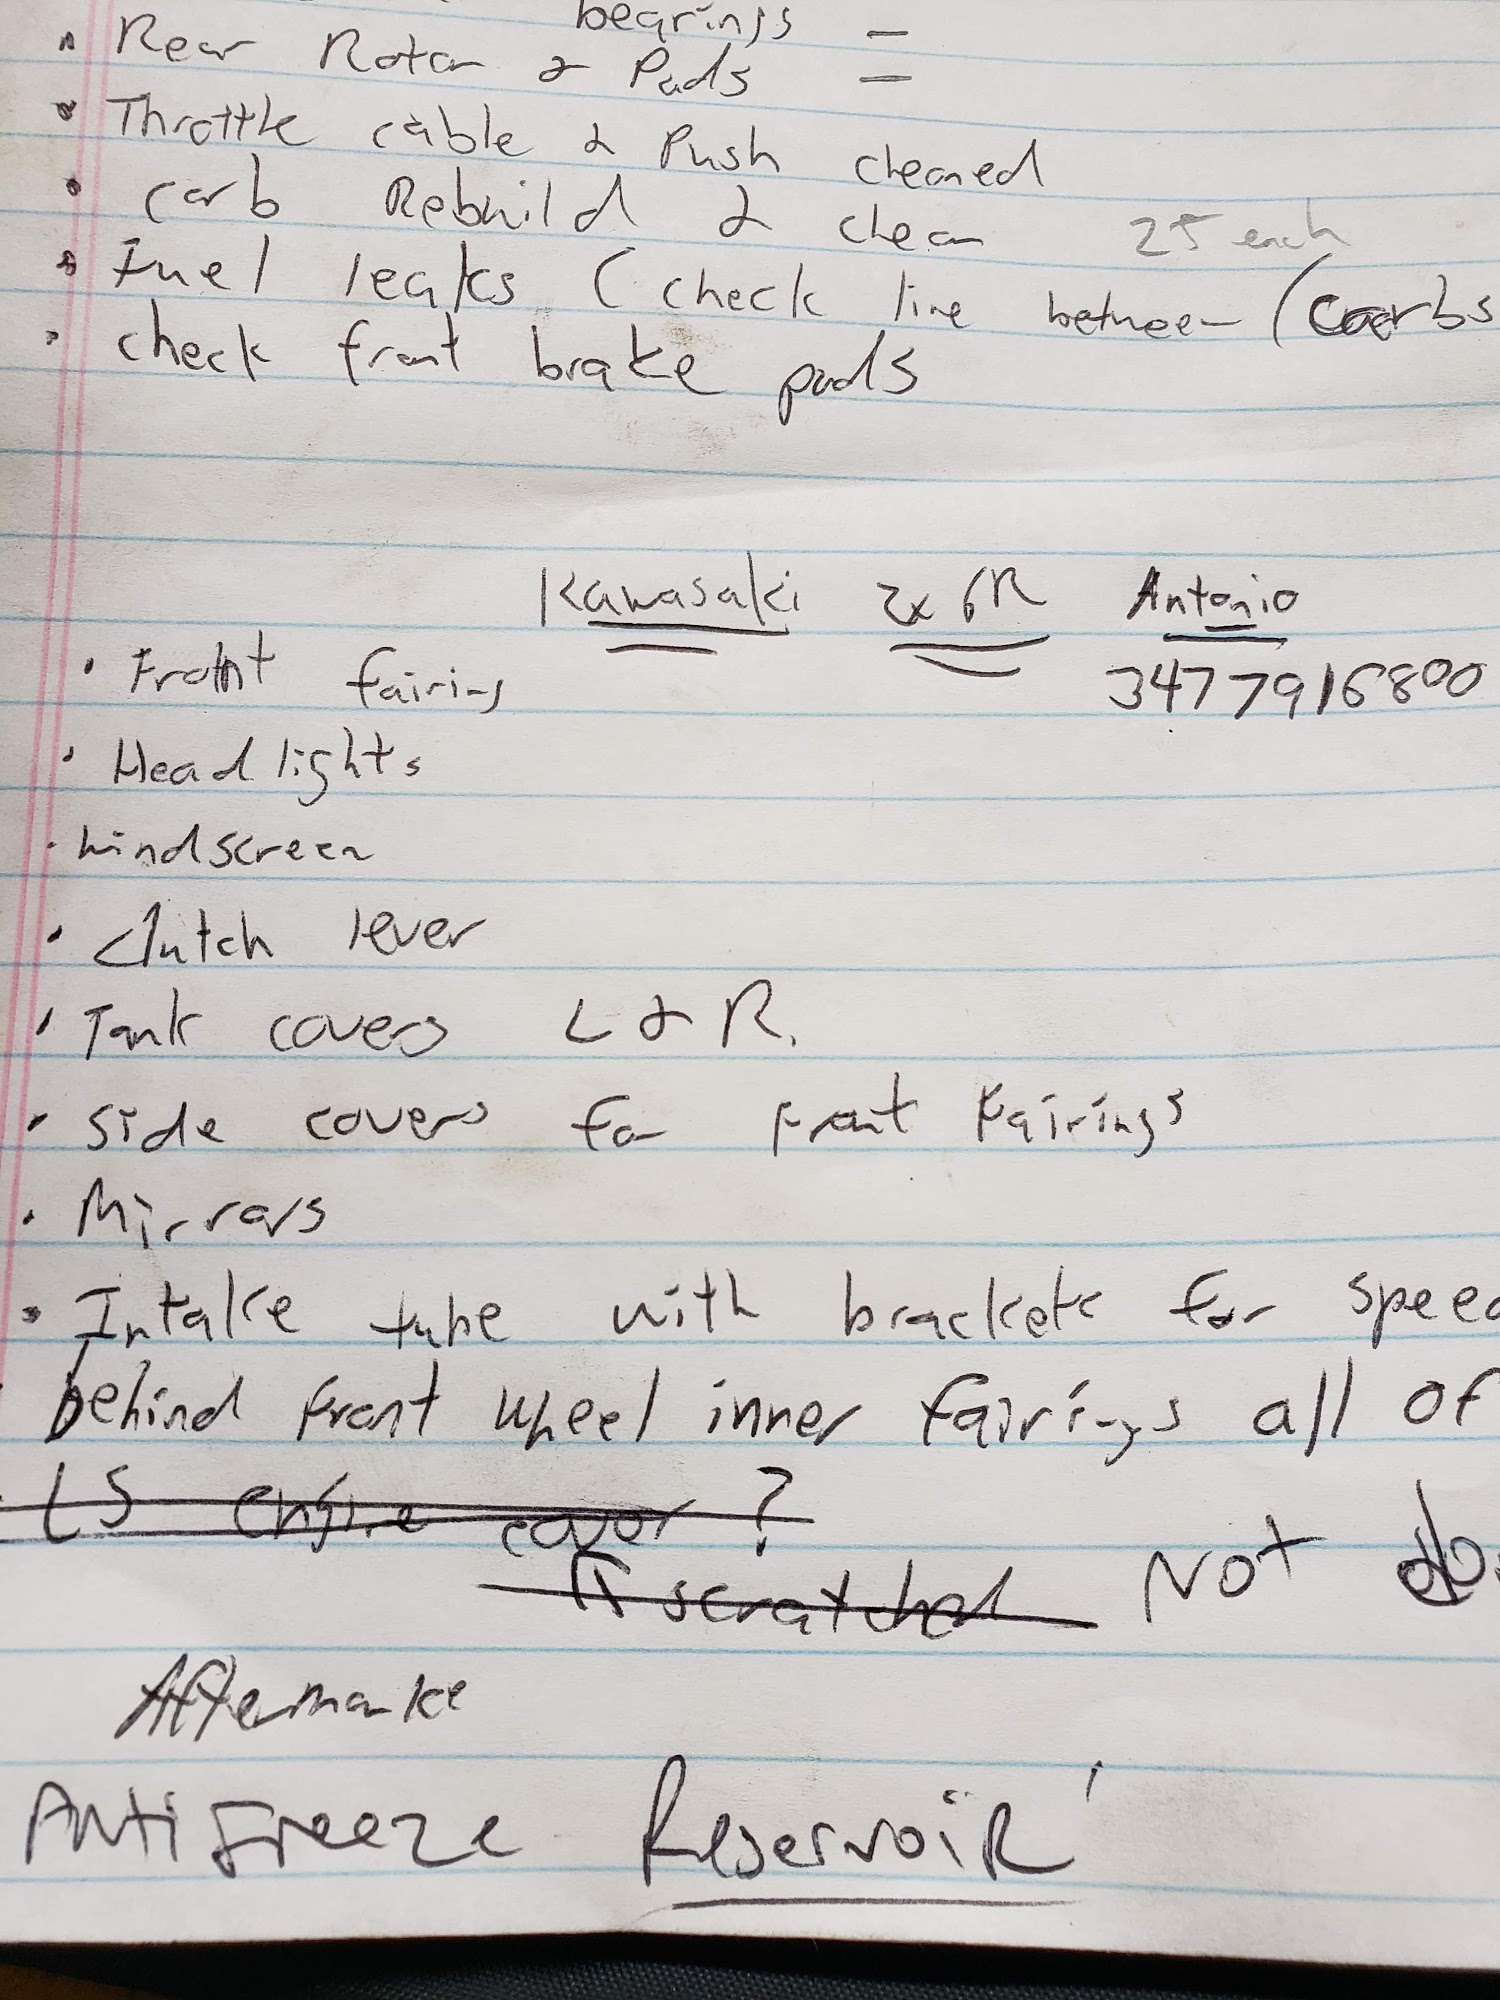 bearings -
• Rear Rotor & Pads -
• Throttle cable & Push cleaned
• carb Rebuild & clean 25 each
• Fuel leaks ( check line between (carbs
• check front brake pads
Kawasaki zx 6R Antonio
• Front fairing 3477916800
• Headlights
• windscreen
• Clutch lever
• Tank covers L & R.
• side covers for front Fairings
• Mirrors
• Intake tube with brackets for speed
behind front wheel inner fairings all of
LS engine cover ?
scratched Not do
Aftermarke
AntiFreeze Reservoir